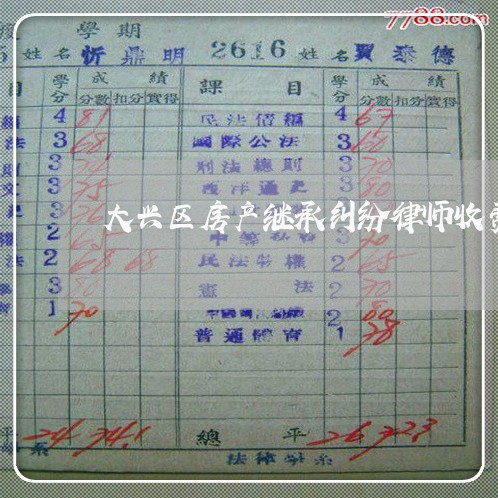 7788.com
學期
姓名 忻鼎明 2616 姓名 賈泰德
目 學分 成績 課目 學分 成績
分數 扣分 實得 分數 扣分 實得
4 81 民法債編 4 67
法 3 68 國際公法 3 60
則 3 刑法總則 3 70
3 75 西洋通史 3 80
3 76 3
大兴区房产继承纠纷律师收费
權 2 65 3 70
法 2 68 68 民法物權 2 65
3 80 憲法 2 70
1 70 2 80
普通體育 1 78
平 24 74.1 總平 26 72.3
系 法律學系